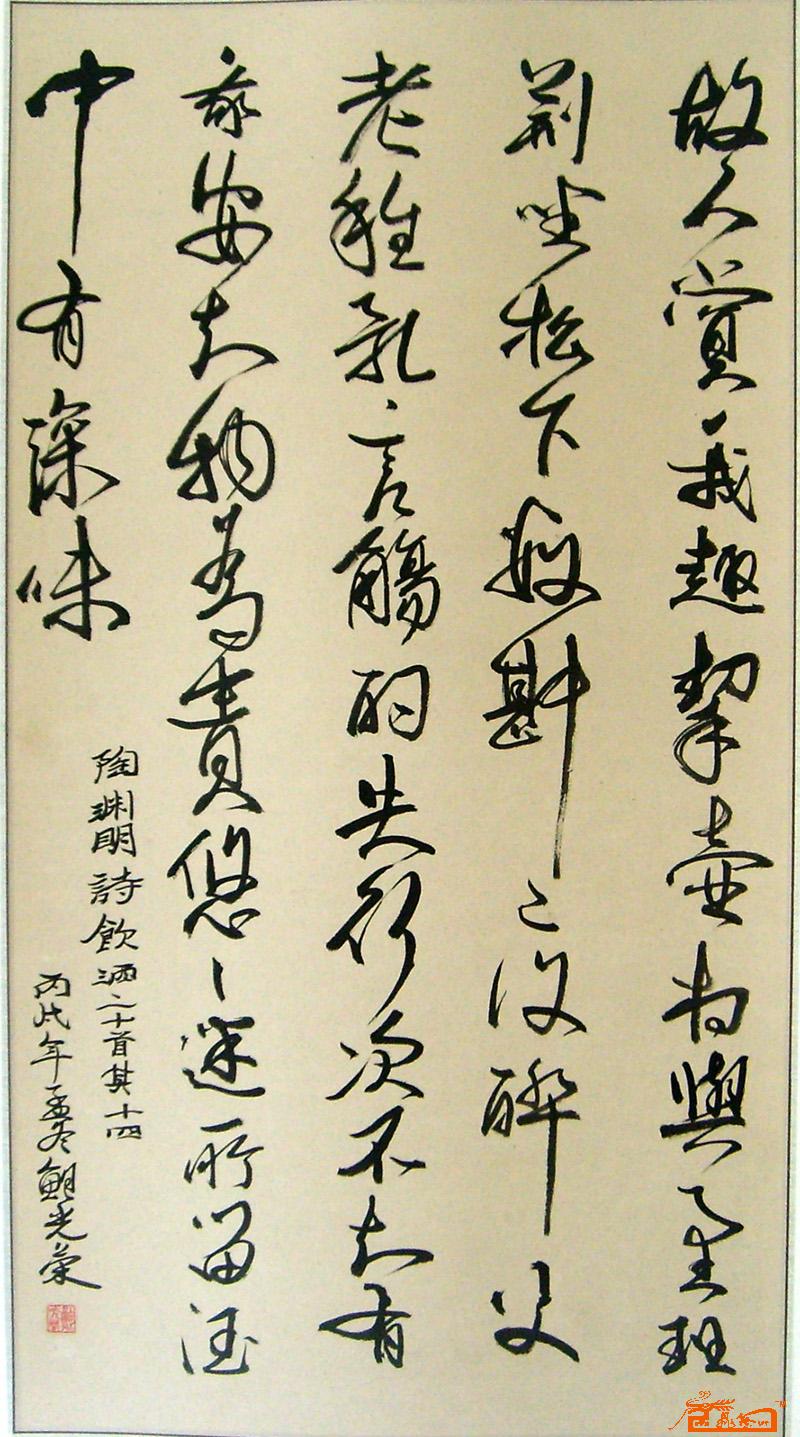 故人賞我趣挈壺相與至班
荊坐松下數斟已復醉父
老雜亂言觴酌失行次不知有
我安知物為貴悠々迷所留酒
中有深味
陶渊明詩飲酒二十首其十四
丙戌年孟冬鮑光榮